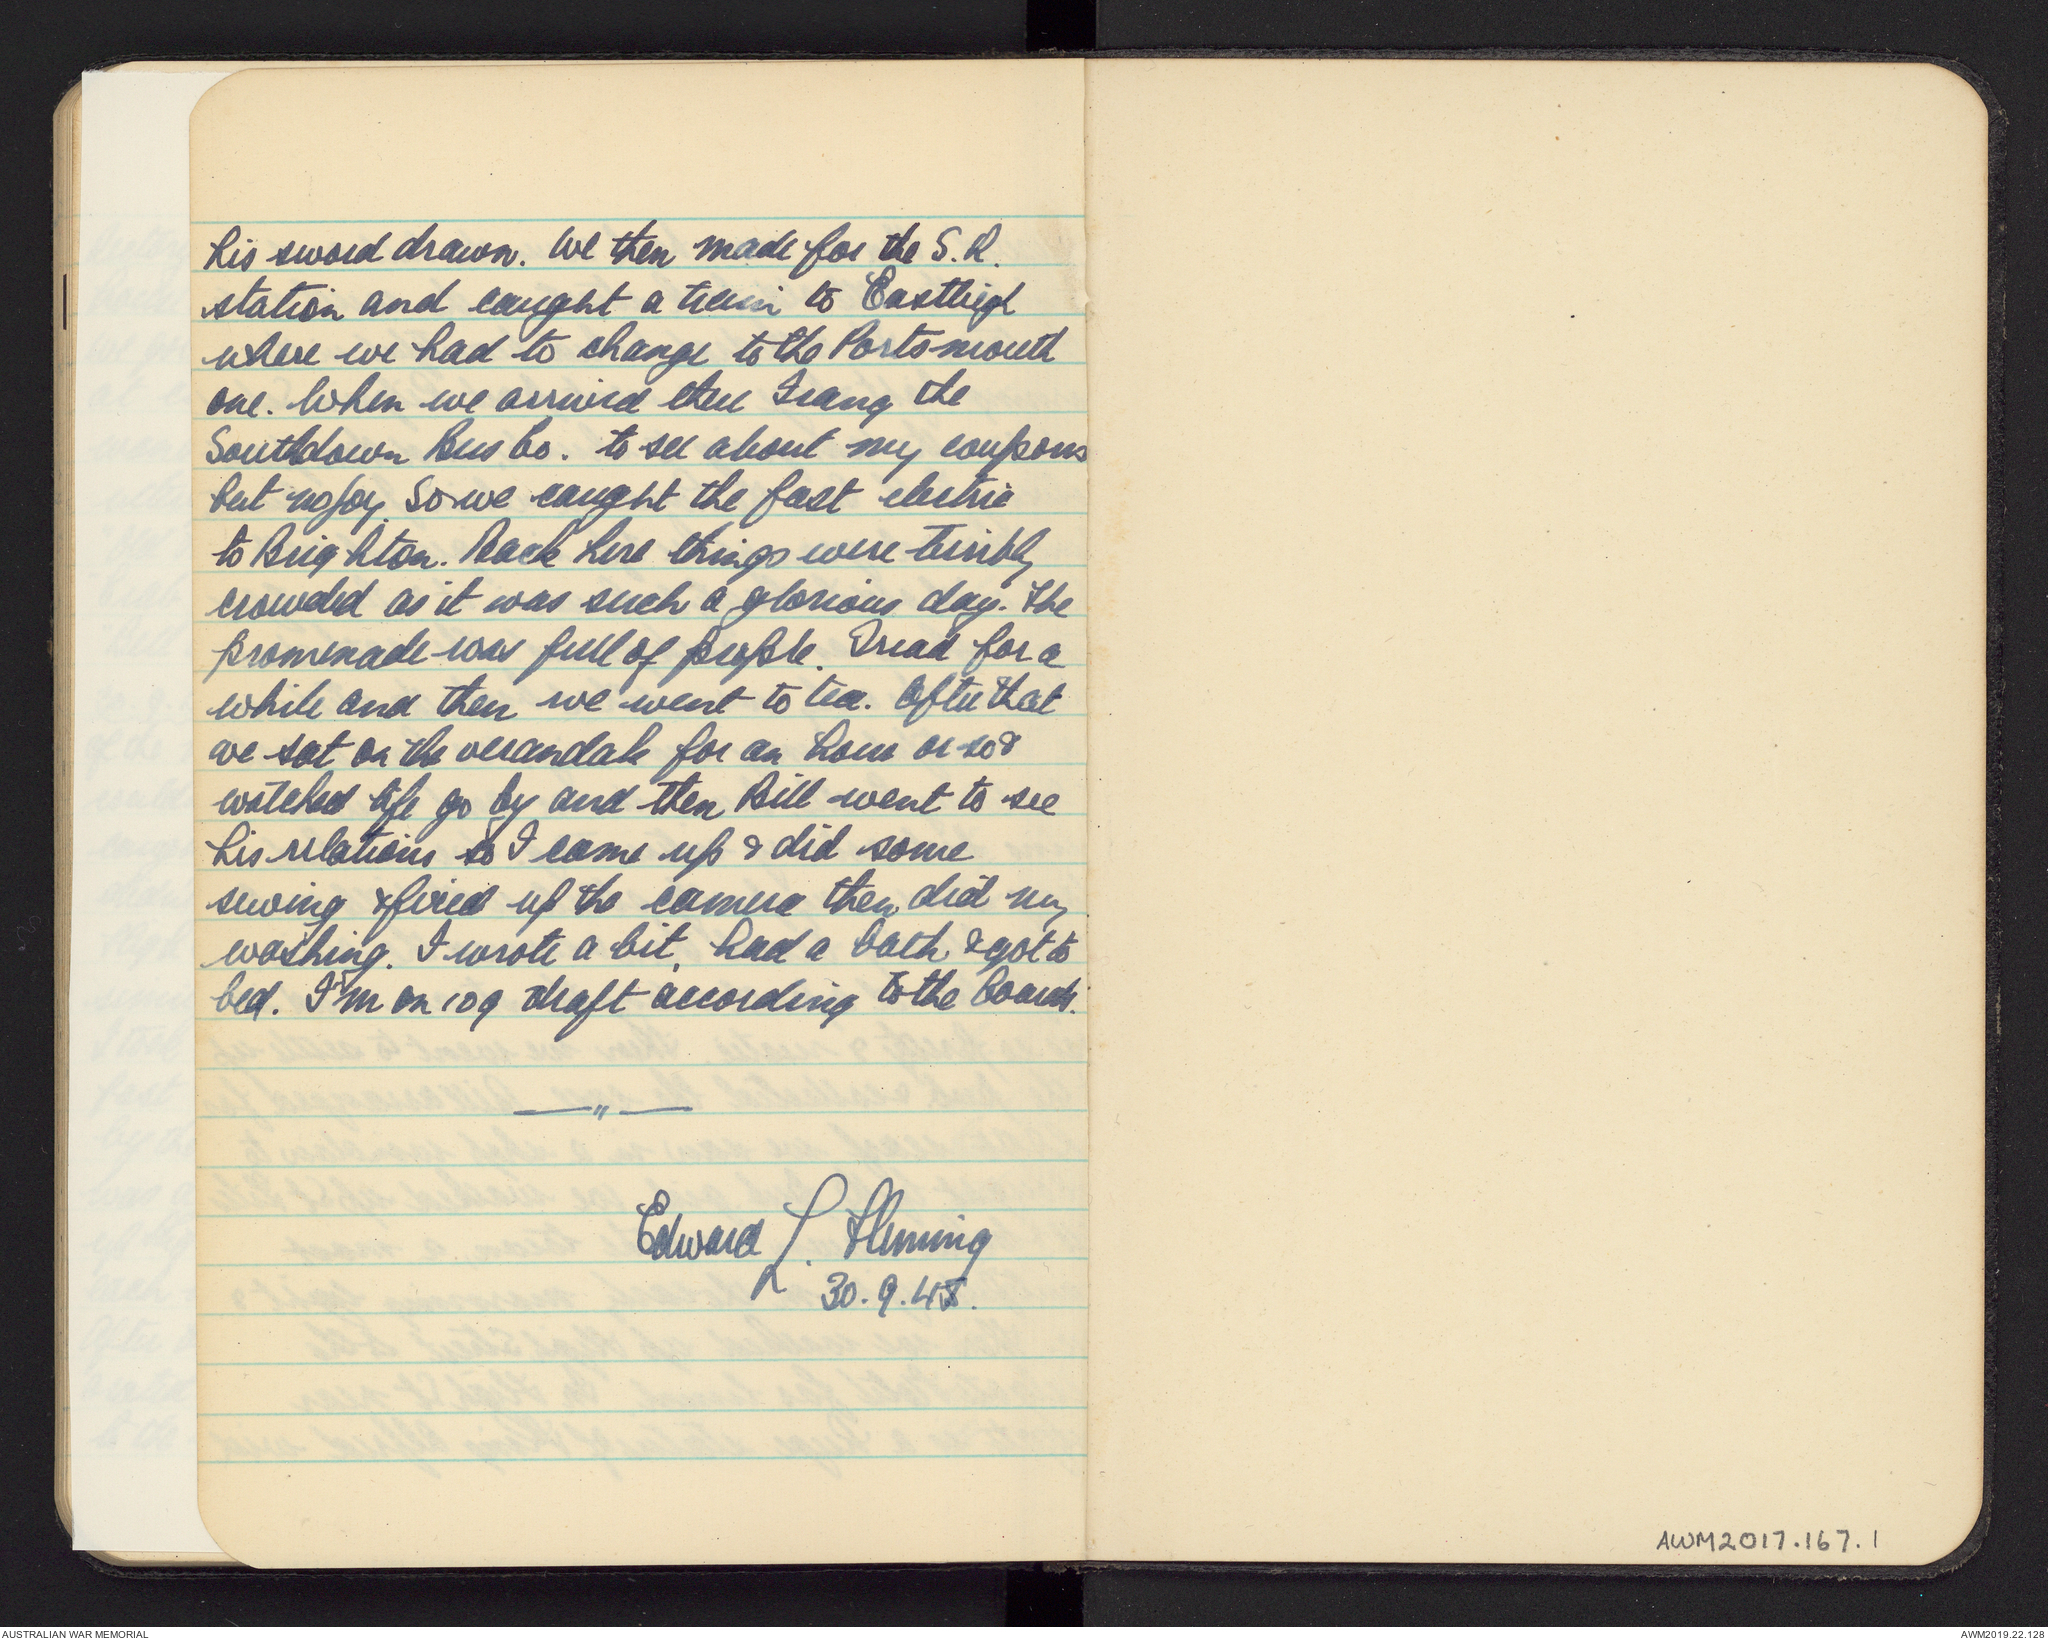 his sword drawn. We then made for the S.R.
station and caught a train to Eastleigh
where we had to change to the Portsmouth
one. When we arrived there I rang the
Southdown Bus Co. to see about my coupons
but no joy so we caught the fast electric
to Brighton. Back here things were terribly
crowded as it was such a glorious day. The
promenade was full of people. I read for a
while and then we went to tea. After that
we sat on the verandah for an hour or so &
watched life go by and then Bill went to see
his relations so I came up & did some
sewing & fixed up the camera then did my
washing. I wrote a bit, had a bath & got to
bed. I'm on 109 draft according to the boards.
—"—
Edward L. Fleming
30.9.45.
AWM2017.167.1
AUSTRALIAN WAR MEMORIAL
AWM2019.22.128